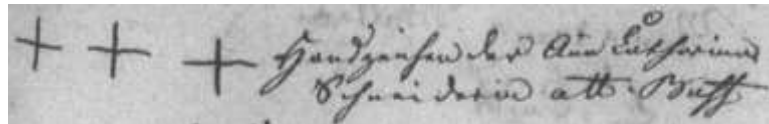 + + + Handzeichen der Ann Catharina
Schneiderin att. Buff